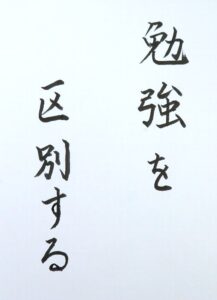 勉強を
区別する